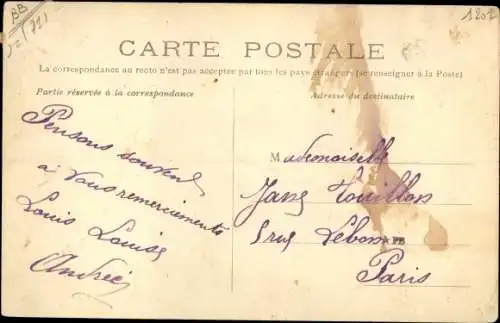 BB
1202
CARTE POSTALE
La correspondance au recto n'est pas acceptée par tous les pays étrangers (se renseigner à la Poste)
Partie réservée à la correspondance
Adresse du destinataire
Pensons souvent
à vous remerciements
Louis Louise
Andrée
Mademoiselle
Jane Touillon
5 rue Lebon
Paris